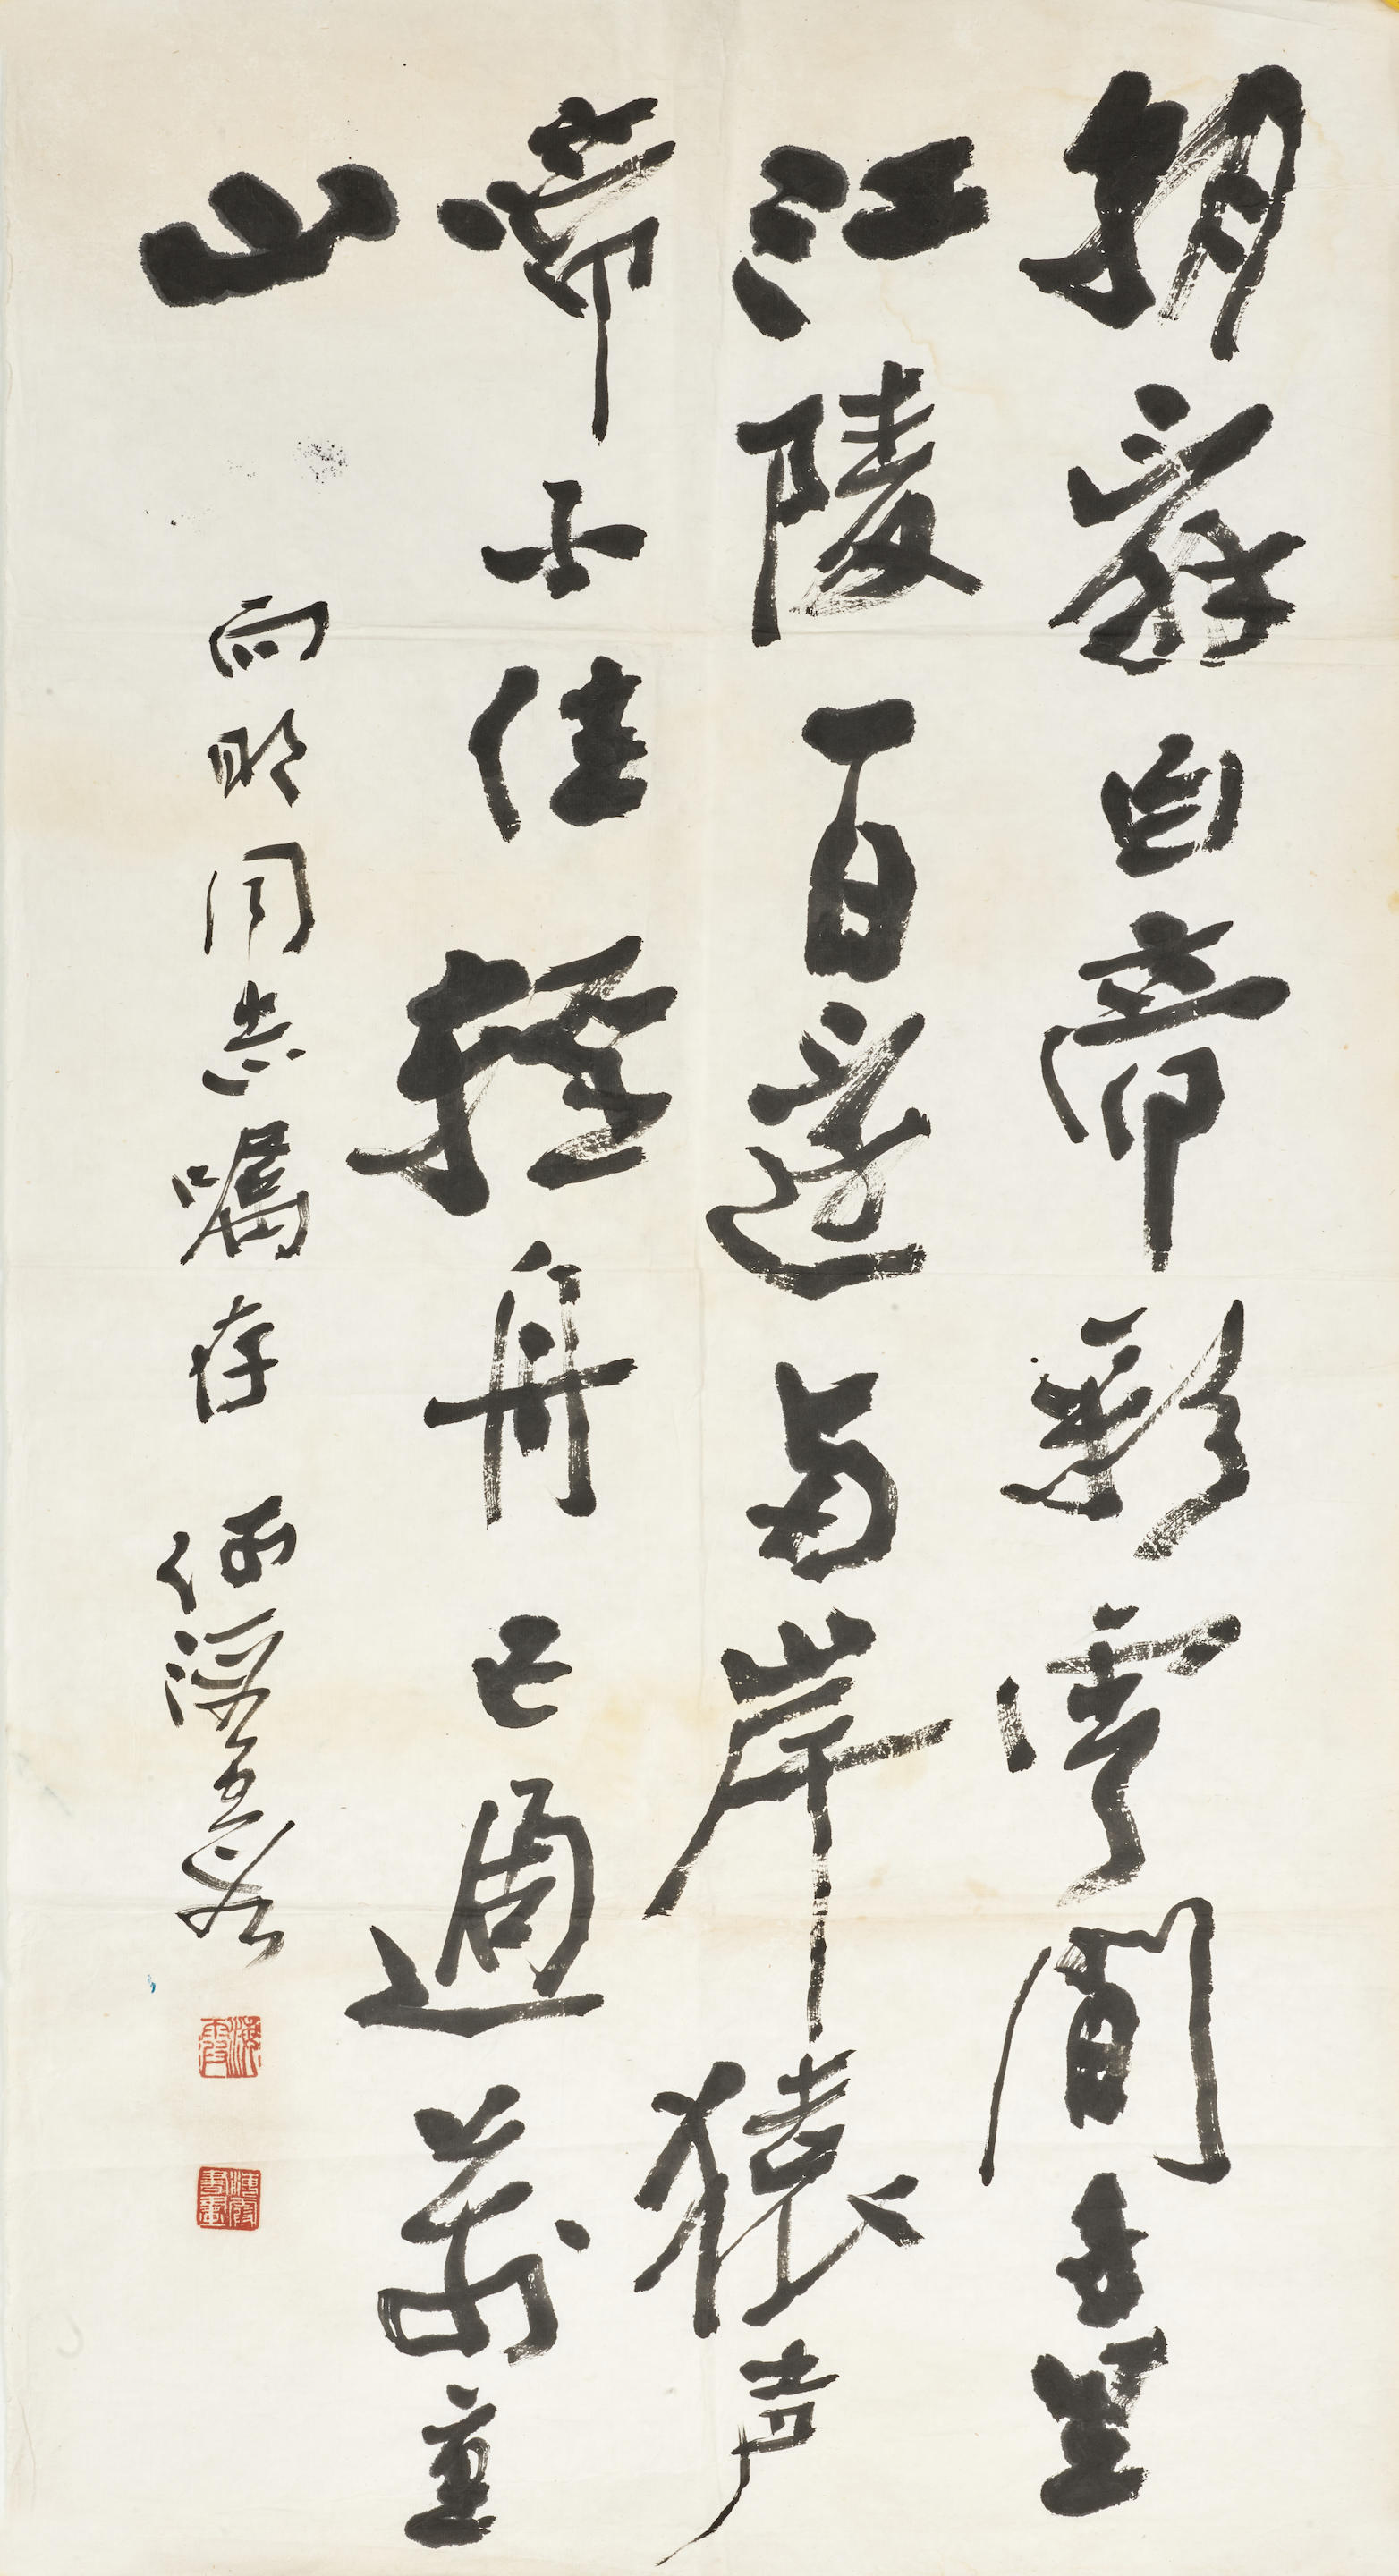 朝辭白帝彩雲間千里
江陵一日還两岸猿声
啼不住輕舟已過萬重
山
向明同志嘱存 何海霞
海霞
海霞書畫